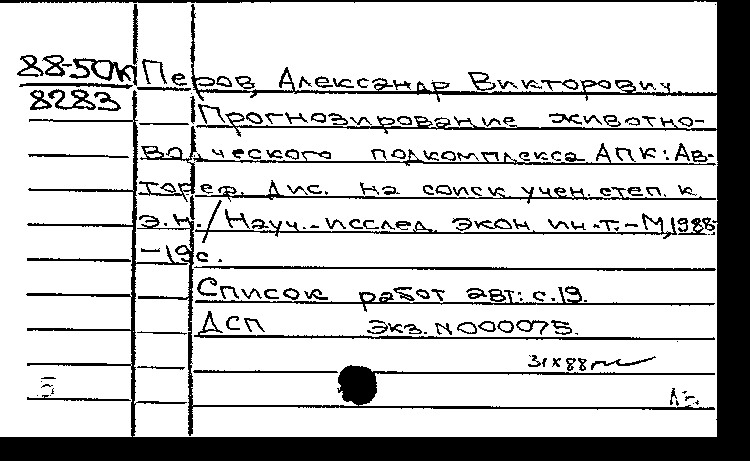 88-50к
8283
Перов, Александр Викторович.
Прогнозирование животно-
водческого подкомплекса АПК: Ав-
тореф. дис. на соиск. учен. степ. к.
э.н. / Науч.-исслед. экон. ин-т. - М, 1988
- 19 с.
Список работ авт: с. 19.
ДСП Экз. N000075.
31 X 88